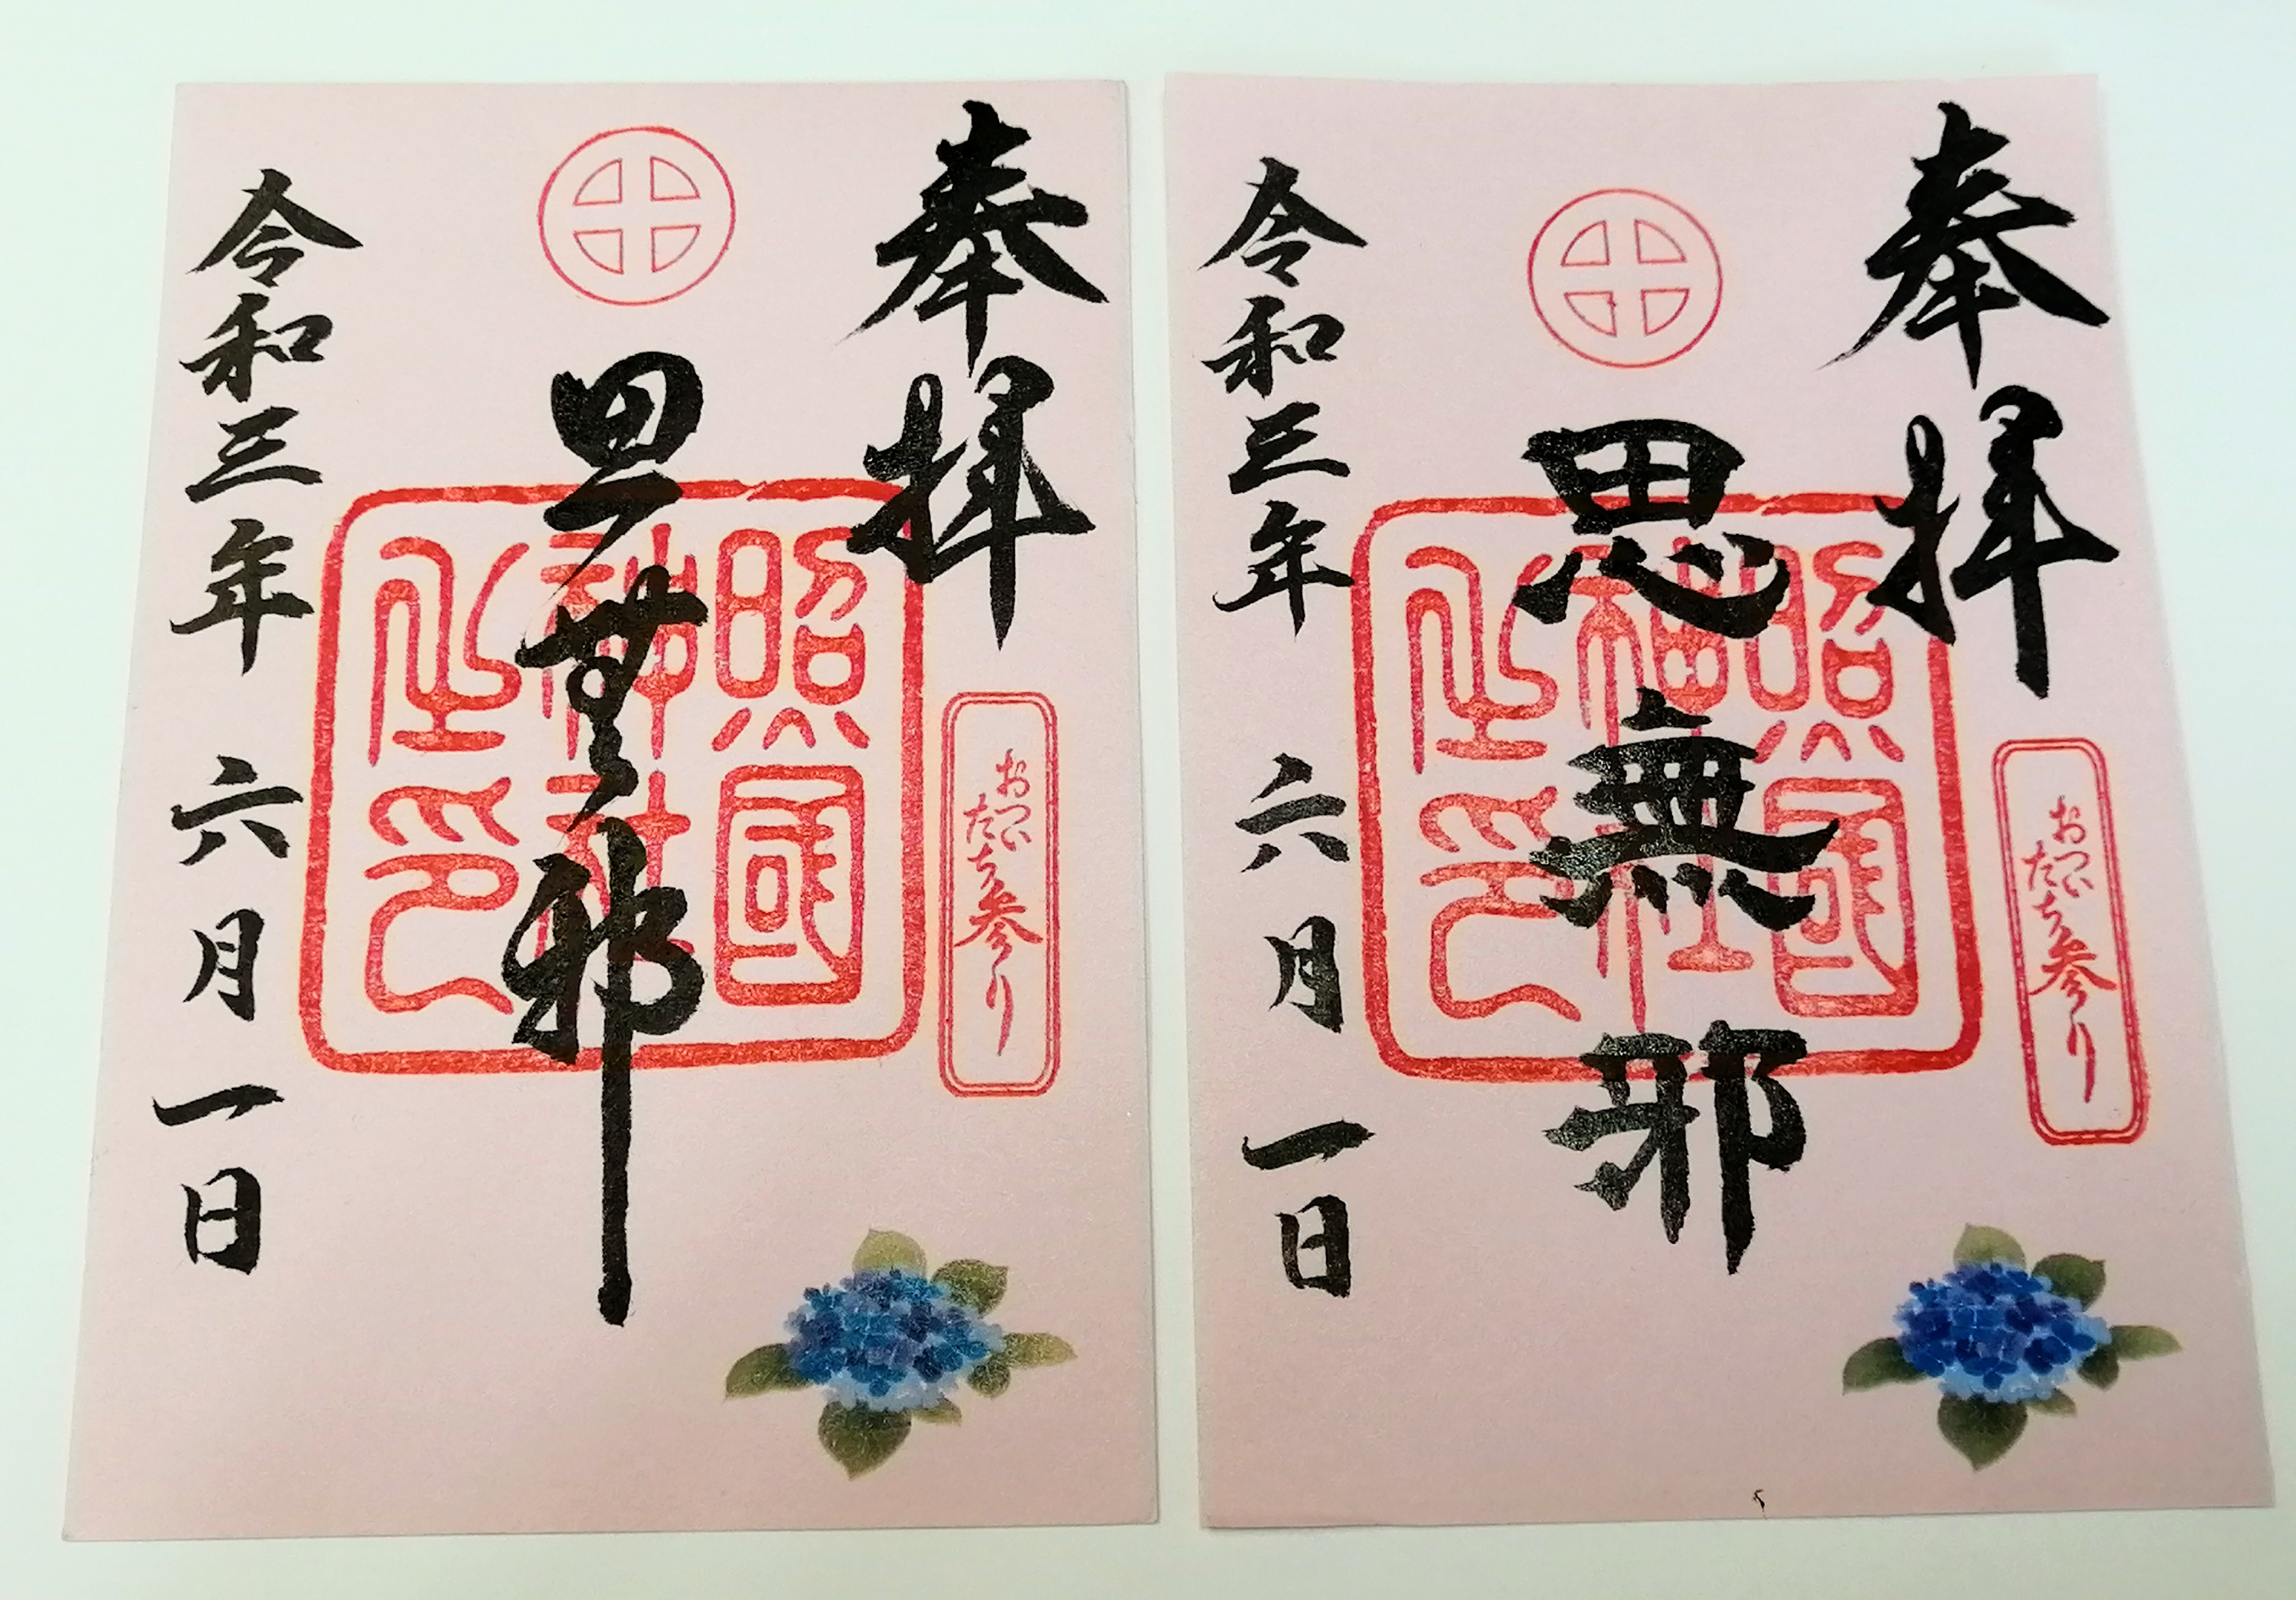 奉拝
思無邪
照國神社之印
おついたち参り
令和三年 六月 一日
奉拝
思無邪
照國神社之印
おついたち参り
令和三年 六月 一日